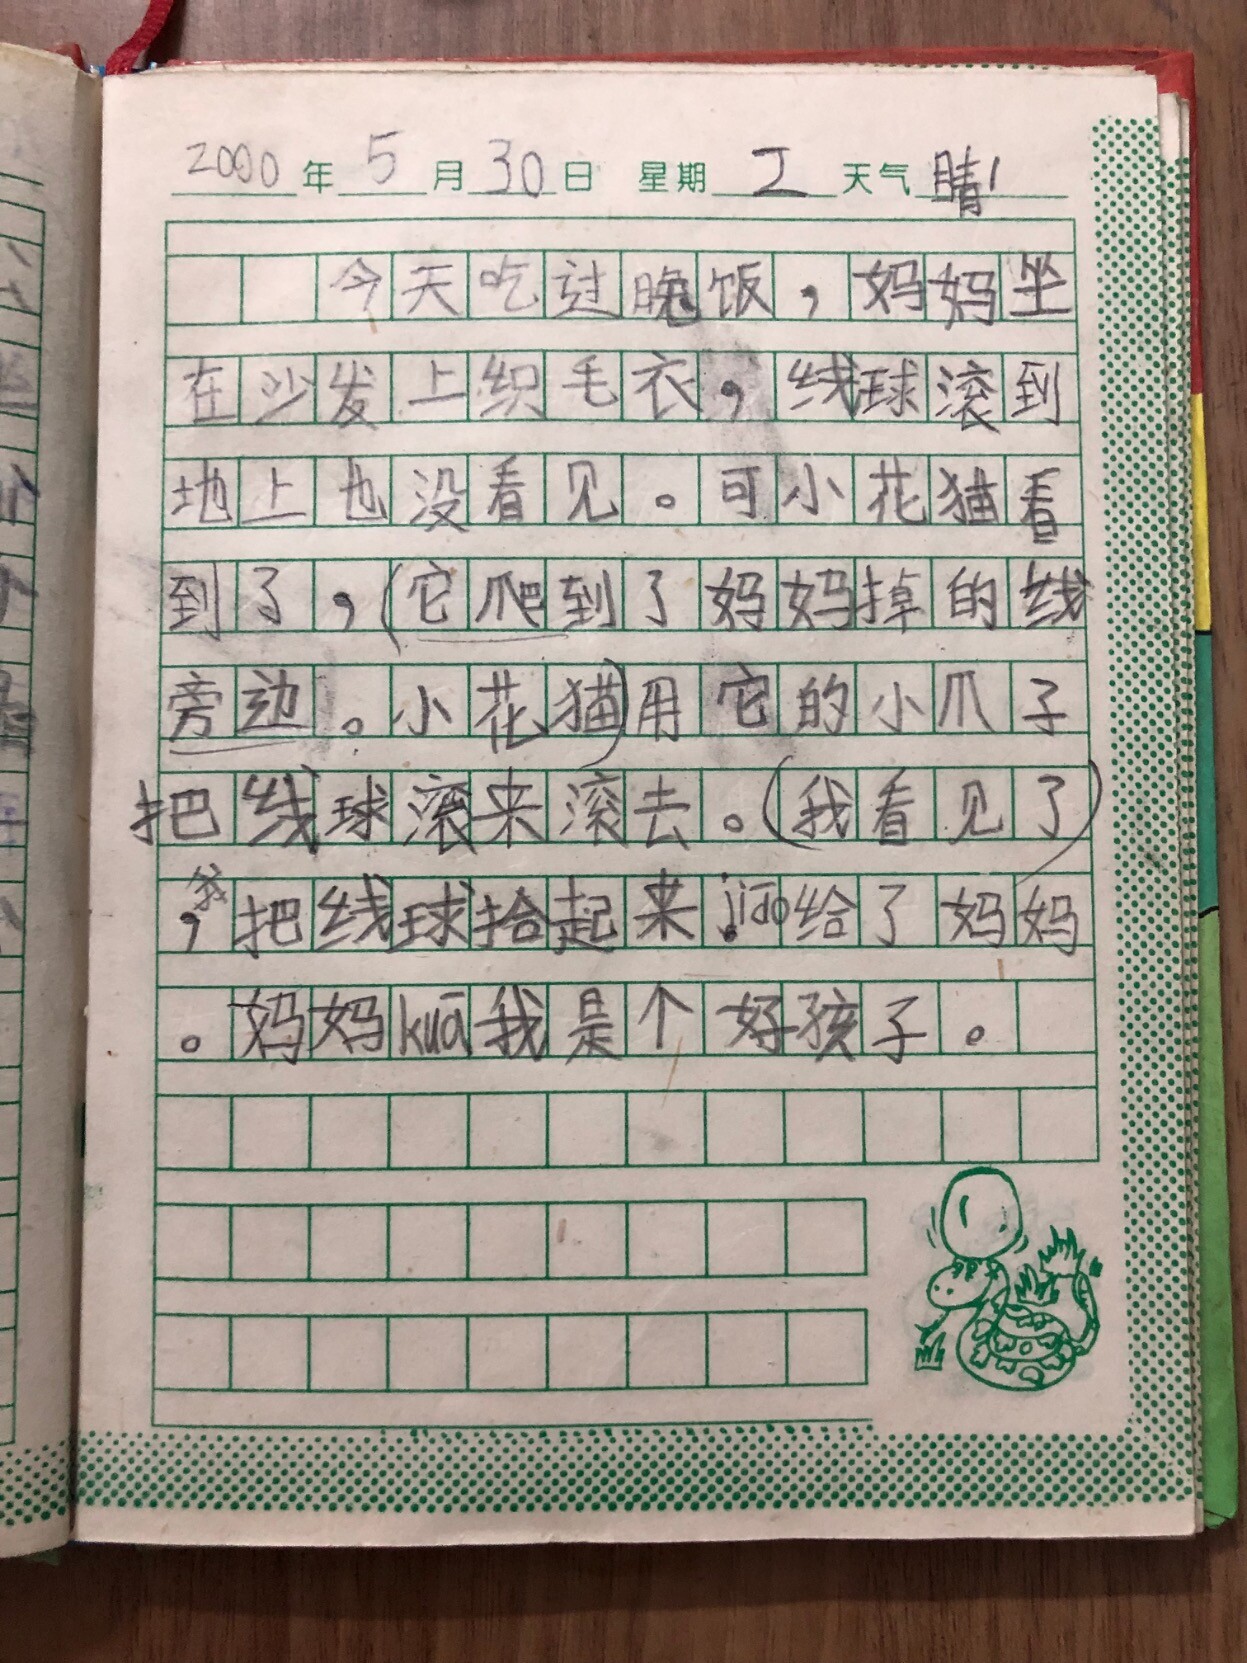 2000年5月30日 星期工 天气晴
今天吃过晚饭，妈妈坐
在沙发上织毛衣，线球滚到
地上也没看见。可小花猫看
到了，（它爬到了妈妈掉的线
旁边。小花猫）用它的小爪子
把线球滚来滚去。（我看见了）
，我把线球拾起来jiāo给了妈妈
。妈妈kuā我是个好孩子。